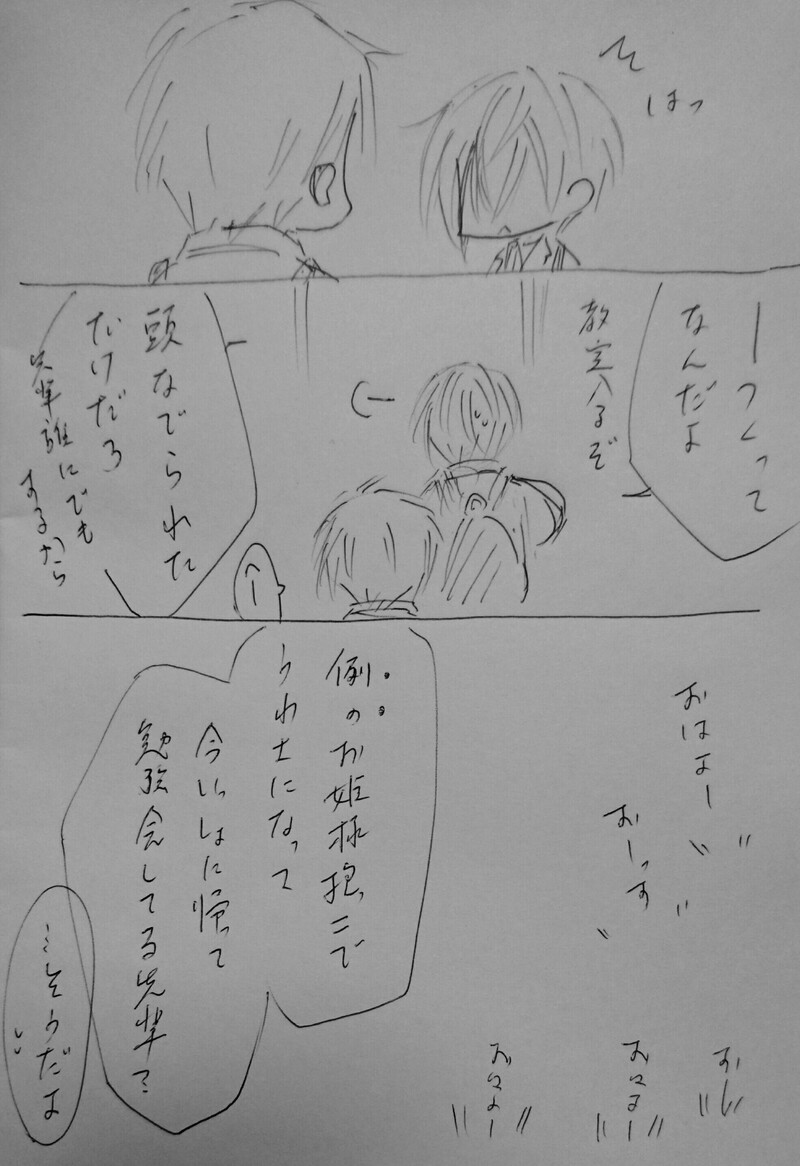 はっ
ーつくって
なんだよ
教室入るぞ
頭なでられた
だけだろ
先輩誰にでも
するから
おはよー
おーっす
例のお姫様抱っこで
うわさになって
今いっしょに帰って
勉強会してる先輩?
…そうだよ
おはよー
おはよー